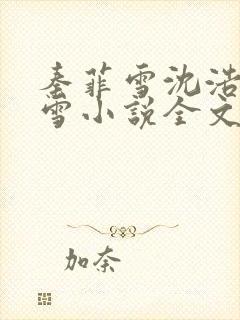 秦菲雪沈浩
雪小说全文
加奈